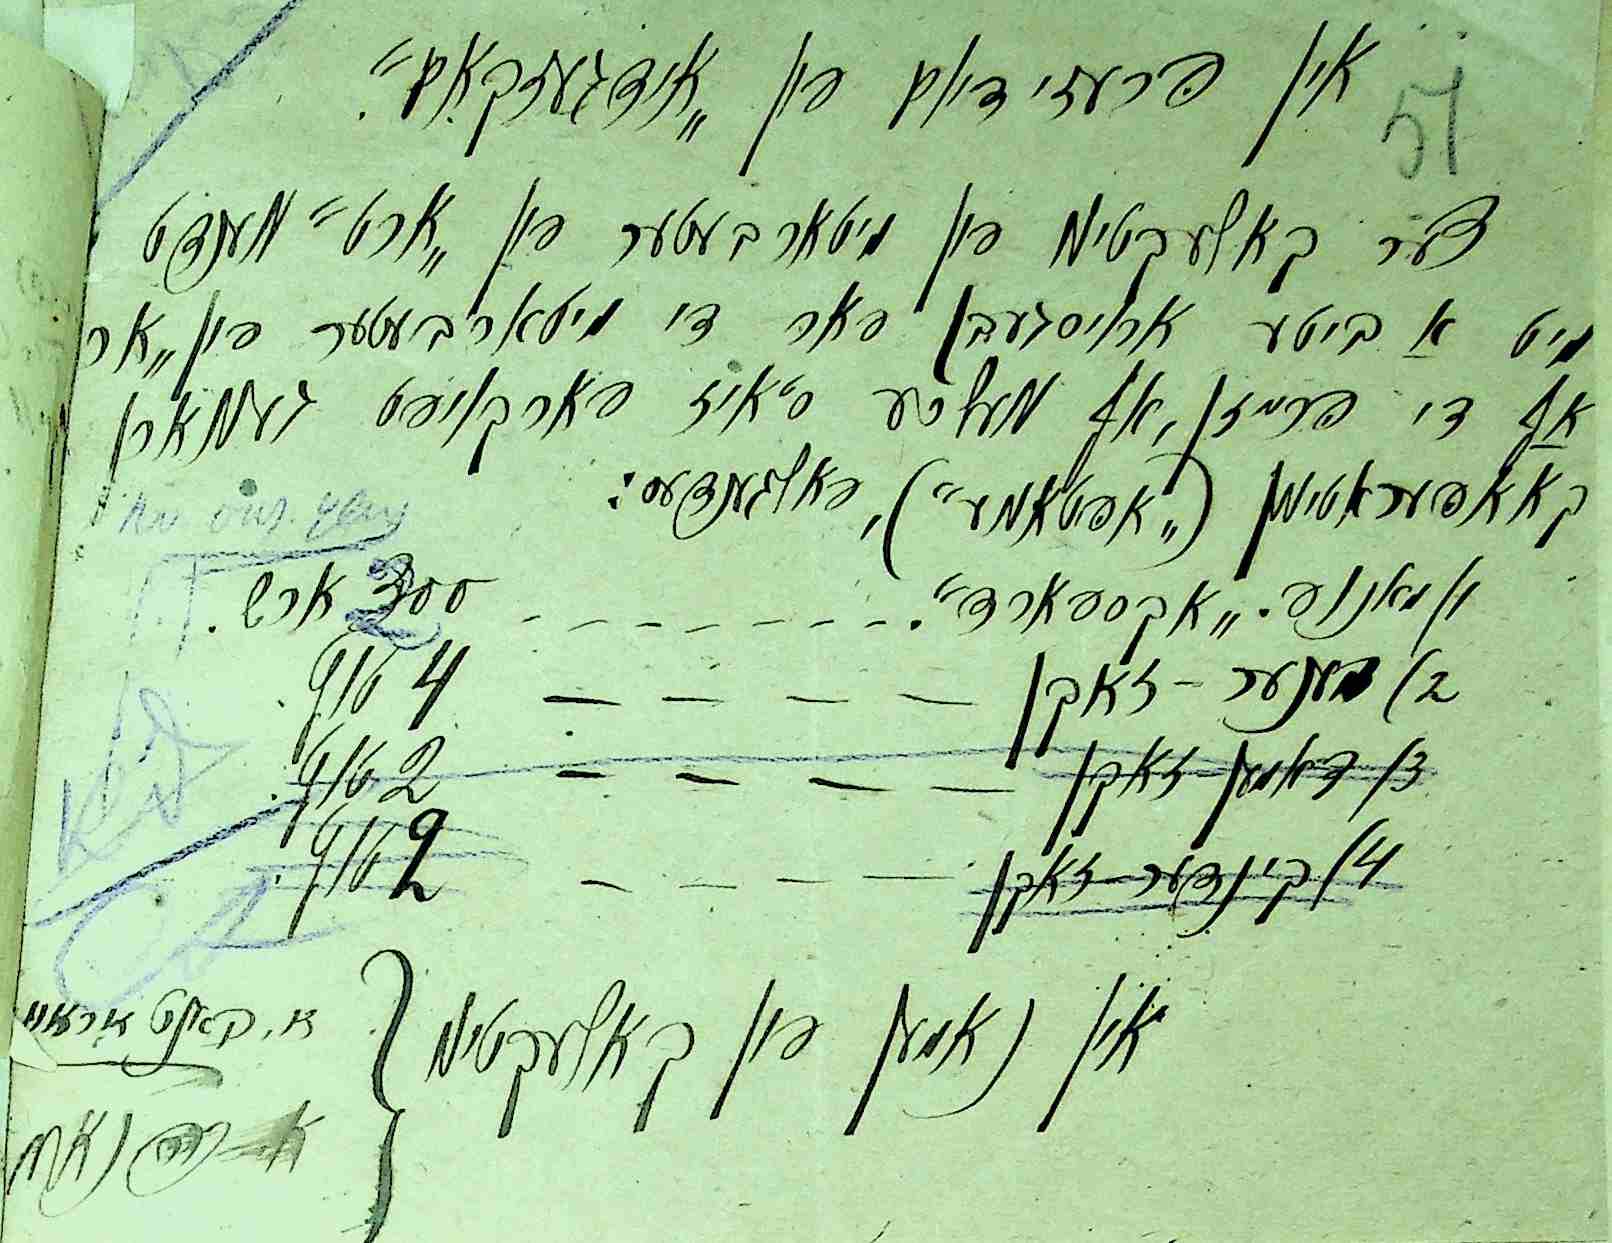 אין פרעזידיום פון „אידגעזקאם“.
51
דער קאלעקטיוו פון מיטארבעטער פון „ארט“ ווענדט
מיט א ביטע ארויסגעבן פאר די מיטארבעטער פון „אר
אף די פרייזן, אף וועלכע ס'איז פארקויפט געווארן
קאאפעראטיוון („אפטאווע“), פאלגנדעס:
1) מאנופ. „אקספארד“. – – – – – – – 200 ארש.
2) מענער-זאקן – – – – 4 טוץ.
3) דאמען-זאקן – – – – 2 טוץ.
4) קינדער-זאקן – – – – 2 טוץ.
אין נאמען פון קאלעקטיוו